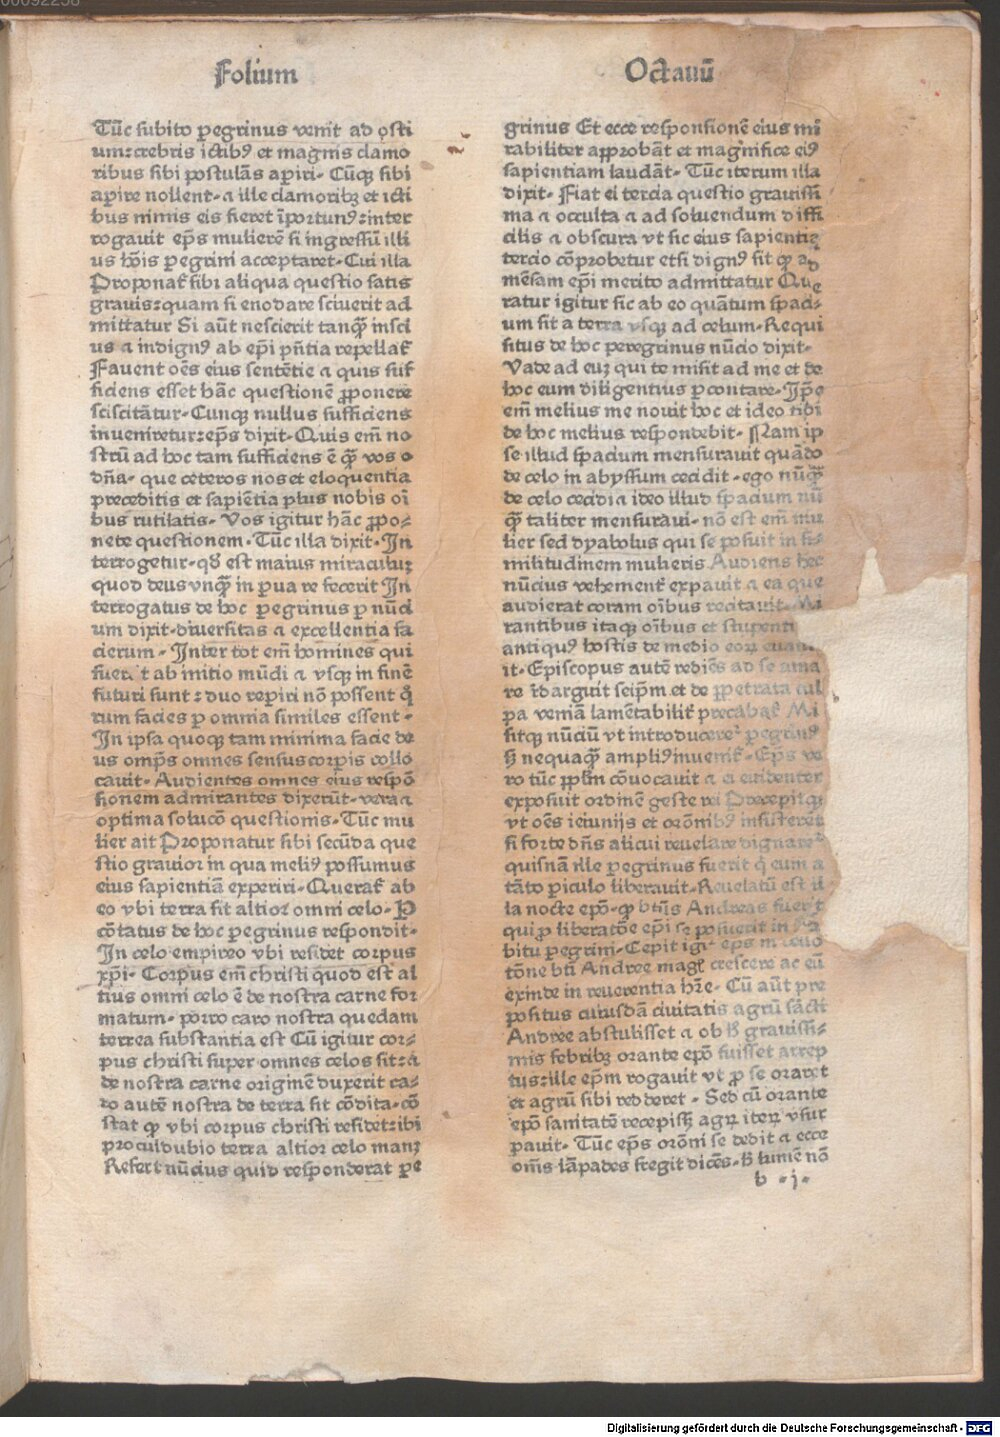 Folium Octauũ
Tũc subito pegrinus venit ad osti
um: crebris ictibꝰ et magnis clamo
ribus sibi postulãs aperiri. Cũqꝫ sibi
apire nollent. a ille clamoribꝫ et icti
bus nimis eis fieret ĩportunꝰ: inter
rogauit ep̃s mulierẽ si ingressũ illi
us hõis pegrini acceptaret. Cui illa
Proponať sibi aliqua questio satis
grauis: quam si enodare sciuerit ad
mittatur Si aũt nescierit tanq̃ʒ insci
us a indignꝰ ab ep̃i pñtia repellať
Fauent oẽs eius sentẽtie a quis suf
ficiens esset hãc questionẽ ꝓponere
sciscitãtur. Cunqꝫ nullus sufficiens
inueniretur: ep̃s dixit. Quis em̃ no
strũ ad hoc tam sufficiens ẽ q̃ʒ vos o
dña. que ceteros nos et eloquentia
preceditis et sapiẽtia plus nobis oĩ
bus rutilatis. Vos igitur hãc ꝓpo⸗
nete questionem. Tũc illa dixit. In
terrogetur. qd̃ est maius miraculuꝫ
quod deus vnq̃ʒ in pua re fecerit In
terrogatus de hoc pegrinus p nũci
um dixit. diuersitas a excellentia fa
cierum. Inter tot em̃ homines qui
fuerũt ab initio mũdi a vsqꝫ in finẽ
futuri sunt: duo reperiri nõ possent q̃
rum facies p omnia similes essent.
In ipsa quoqꝫ tam minima facie de
us omp̃s omnes sensus corpis collo
cauit. Audientes omnes eius respõ
sionem admirantes dixerũt. vera a
optima solucõ questionis. Tũc mu
lier ait Proponatur sibi secũda que
stio grauior in qua meliꝰ possumus
eius sapientiã experiri. Querať ab
eo vbi terra sit altior omni celo. P
cõtatus de hoc pegrinus respondit.
In celo empireo vbi residet corpus
xp̃i. Corpus em̃ christi quod est al
tius omni celo ẽ de nostra carne for
matum. porro caro nostra quedam
terrea substantia est Cũ igitur cor⸗
pus christi super omnes celos sit: a
de nostra carne originẽ duxerit ca⸗
ro autẽ nostra de terra sit cõdita. cõ
stat ꝙ vbi corpus christi residet: ibi
proculdubio terra altior celo manꝫ
Refert nũcius quid responderat pe
grinus Et ecce responsionẽ eius mi
rabiliter approbãt et magnifice eiꝰ
sapientiam laudãt. Tũc iterum illa
dixit. Fiat ei tercia questio grauissi
ma a occulta a ad soluendum diffi
cilis a obscura vt sic eius sapientia
tercio cõprobetur etsi dignꝰ sit ꝙ ad
mẽsam ep̃i merito admittatur Que
ratur igitur sic ab eo quãtum spaci⸗
um sit a terra vsqꝫ ad celum. Requi
situs de hoc peregrinus nũcio dixit.
Vade ad euꝫ qui te misit ad me et de
hoc eum diligentius pcontare. Ip̃e
em̃ melius me nouit hoc et ideo tibi
de hoc melius respondebit. Nam ip
se illud spacium mensurauit quãdo
de celo in abyssum cecidit. ego nũq̃ʒ
de celo cecidi a ideo illud spacium nũ
q̃ʒ taliter mensuraui. nõ est em̃ mu
lier sed dyabolus qui se posuit in si⸗
militudinem mulieris Audiens hec
nũcius vehemenť expauit a ea que
audierat coram oĩbus recitauit. Mi
rantibus itaqꝫ oĩbus et stupenti
antiquꝰ hostis de medio eorꝝ euanu
it. Episcopus autẽ rediẽs ad se ama
re r̃darguit seip̃m et de ꝓpetrata cul
pa veniã lamẽtabiliť precabať Mi
sitqꝫ nũciũ vt introduceret̉ pegrinꝰ
sꝫ nequaq̃ʒ ampliꝰ inueniť. Ep̃s ve
ro tũc pplm̃ cõuocauit a ei euidenter
exposuit ordinẽ geste rei Precepitqꝫ
vt oẽs ieiunijs et orõnibꝰ insisterẽt
si forte dñs alicui reuelare dignaret̉
quisnã ille pegrinus fuerit q̇ eum a
tãto piculo liberauit. Reuelatũ est il
la nocte ep̃o. ꝙ btũs Andreas fuerit
qui ꝓ liberatõe ep̃i se posuerit in ha
bitu pegrini. Cepit igi̇ť ep̃s in deuo
tõne bti Andree magꝭ crescere ac eũ
exinde in reuerentia hr̃e. Cũ aũt pre
positus cuiusdã ciuitatis agrũ sãcti
Andree abstulisset a ob hꝰ grauissi⸗
mis febribꝫ orante ep̃o fuisset arrep
tus: ille ep̃m rogauit vt ꝓ se oraret
et agrũ sibi redderet. Sed cũ orante
ep̃o sanitatẽ recepissꝫ agꝝ iteꝝ vsur
pauit. Tũc ep̃s orõni se dedit a ecce
om̃s lãpades fregit dicẽs. hꝰ lumẽ nõ
b . j.
Digitalisierung gefördert durch die Deutsche Forschungsgemeinschaft - DFG